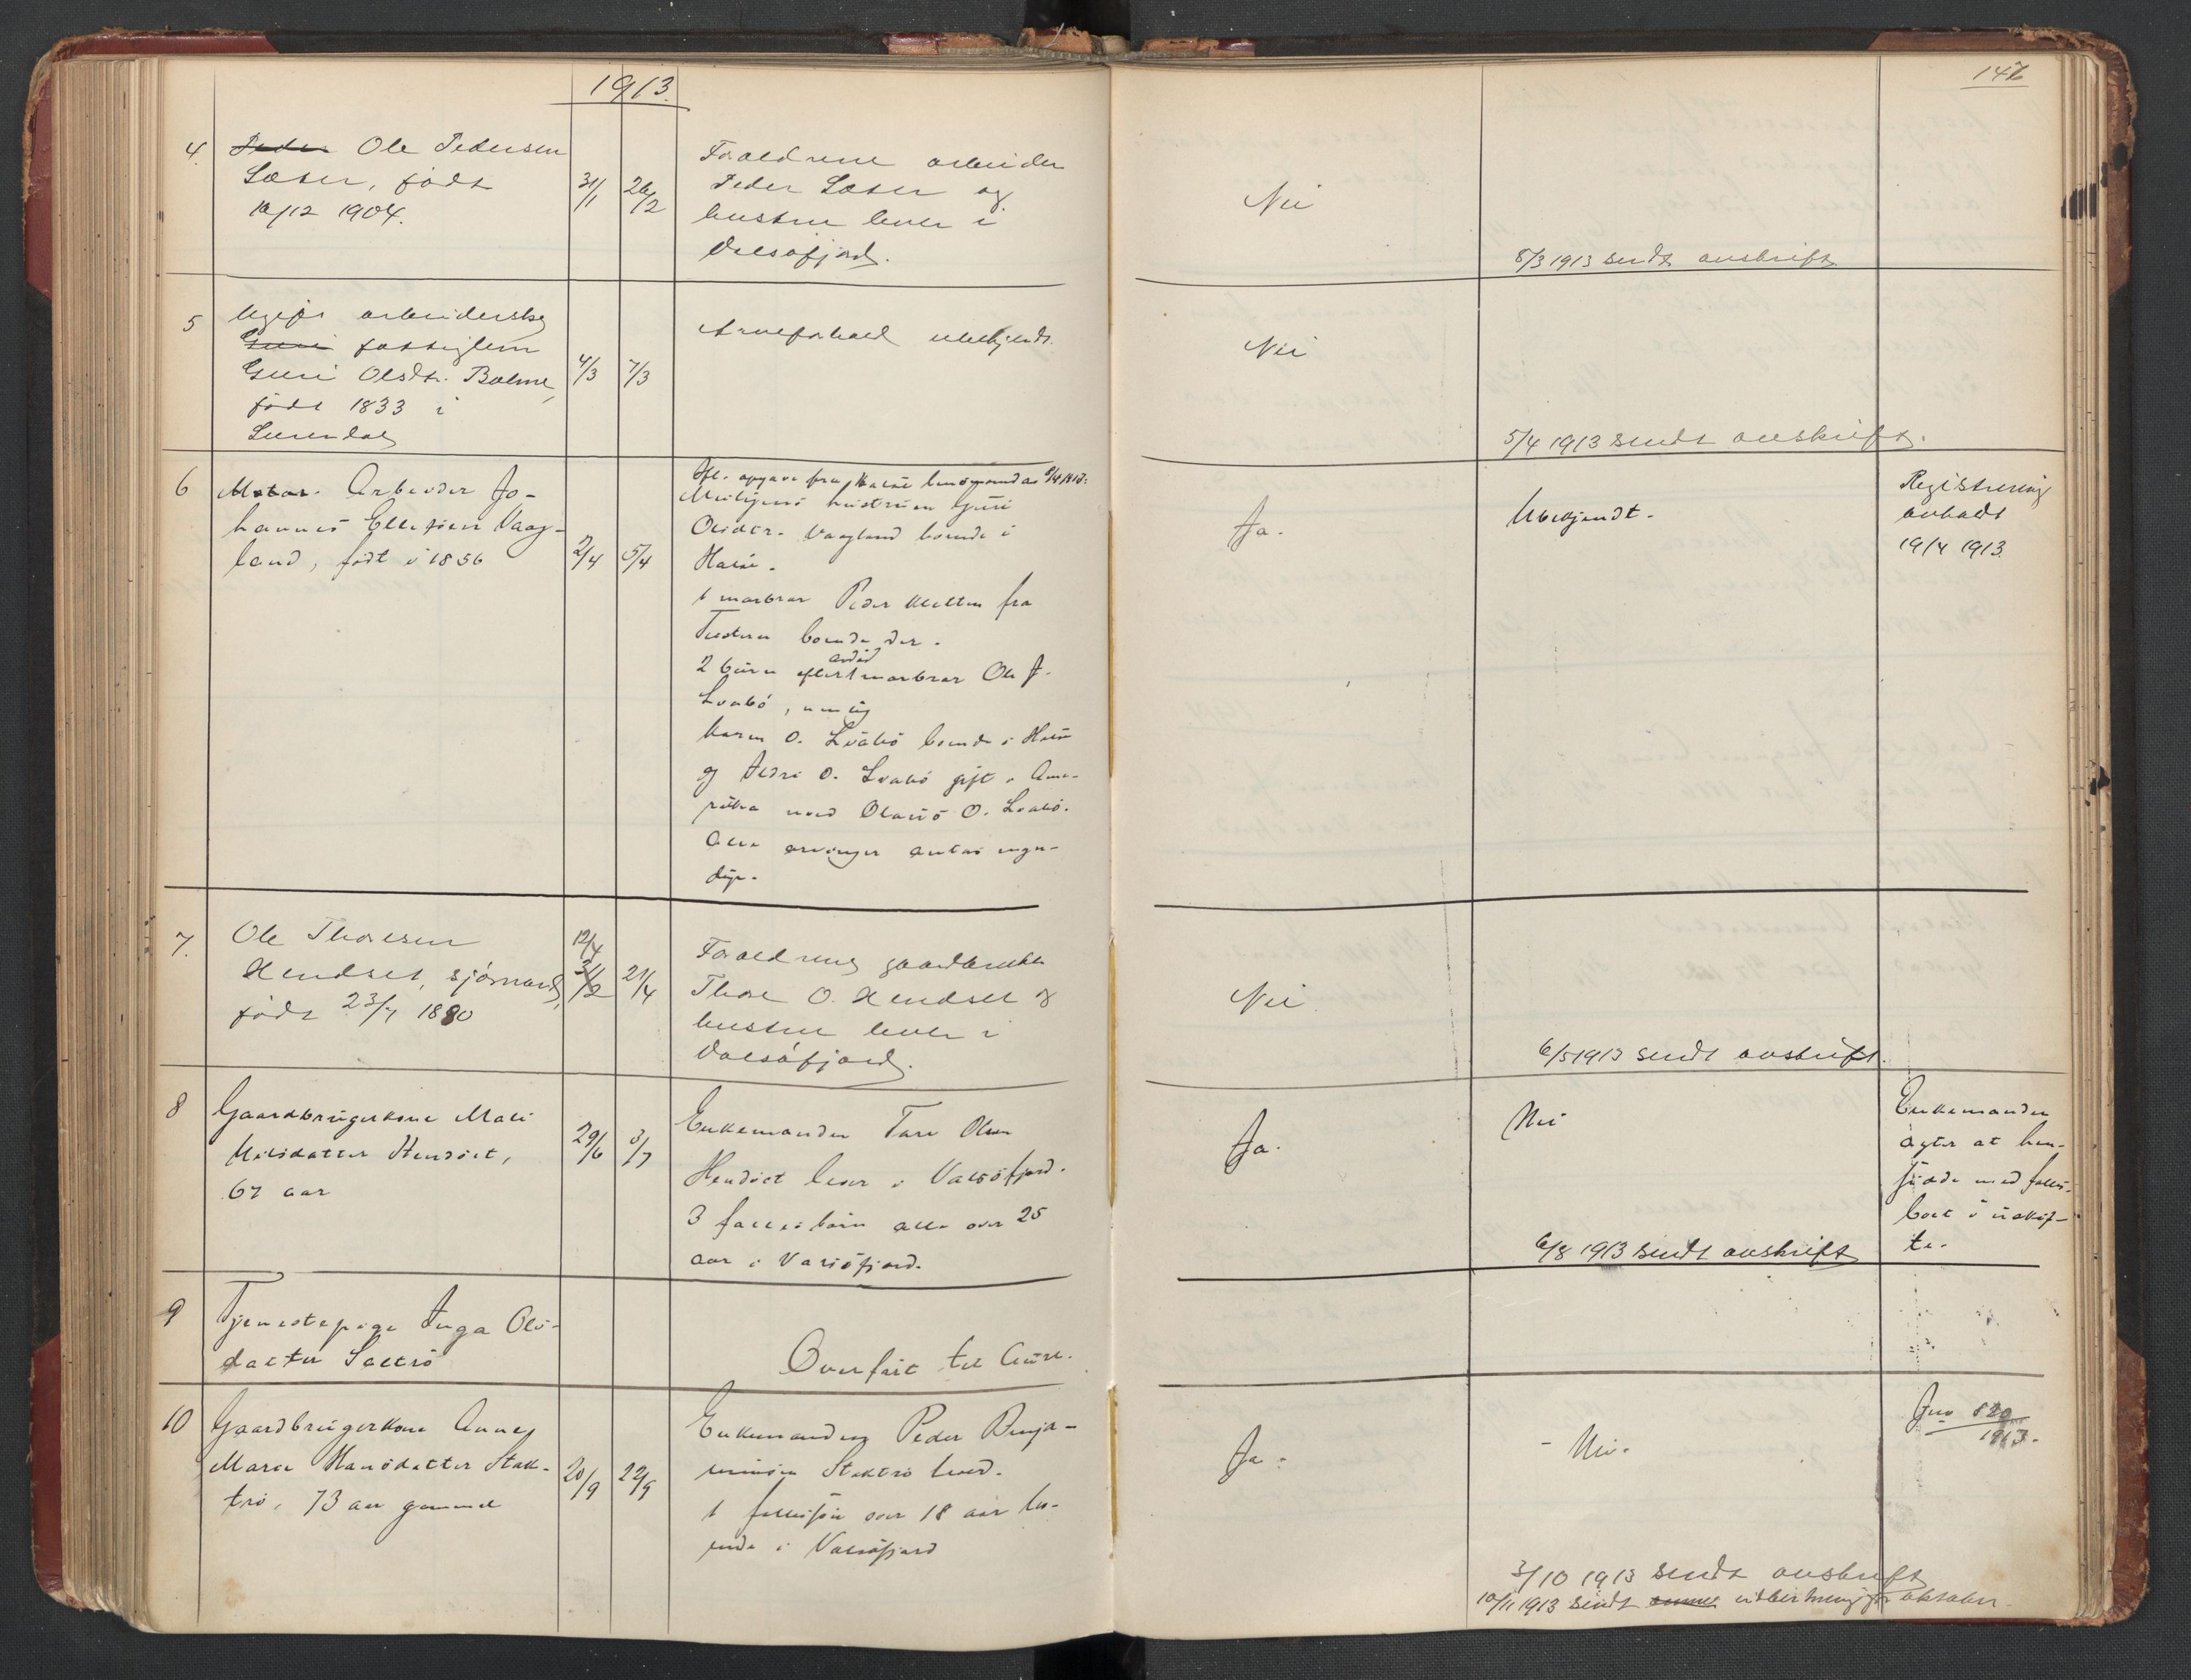 1913.
146
4. Peder Ole Pedersen
Sæter, født
10/12 1904.
31/1 26/2
Forældrene arbeider
Peder Sæter og
hustru lever i
Valsøfjord.
Nei
8/3 1913 sendt avskrift
5 Ugift arbeiderske
Guri fattiglem
Guri Olsdtr. Bolme,
født 1833 i
Surendal
4/3 7/3
Arveforhold ubekjendt.
Nei
5/4 1913 sendt avskrift.
6 Arbeider Jo-
hannes Ellefsen Vaag-
land, født i 1856
2/4 5/4
opgave fra Halse
hustruen Guri
Olsdtr. Vaagland boende i
Halse.
1 morbror Peder fra
Tustern boende der.
avdød
2 børn efter 1 morbror Ole J.
Svabø, nemlig
Karen O. Svabø boende i Halse
og O. Svabø gift i Ame-
rika med O. Svabø.
Alle arvinger antas myn-
dige.
Ja.
Ubekjendt.
Registrering
avholdt
19/4 1913
7. Ole Thoresen
Hendset, sjømand,
født 23/7 1880
12/4
21/4
Forældrene gaardbruker
Thore O. Hendset og
hustru lever i
Valsøfjord.
Nei
6/5 1913 sendt avskrift.
8 Gaardbrugerkone Mali
Nilsdatter Hendset,
67 aar
29/6 3/7
Enkemanden Tore Olsen
Hendset lever i Valsøfjord.
3 fællesbørn alle over 25
aar i Valsøfjord.
Ja.
Nei
6/8 1913 sendt avskrift
Enkemanden
agter at hen-
sidde med fælles-
boet i uskif-
te.
9 Tjenestepige Inga Ols-
datter Sættrø
Overført til Aure.
10 Gaardbrugerkone Anne
Maria Hansdatter Stok-
trø, 73 aar gammel
20/9 22/9
Enkemanden Peder Benja-
minsen Stoktrø lever.
1 fællessøn over 18 aar bo-
ende i Valsøfjord
Ja.
- Nei.
Jno 820
1913.
3/10 1913 sendt avskrift
10/11 1913 sendt indberetning for oktober.